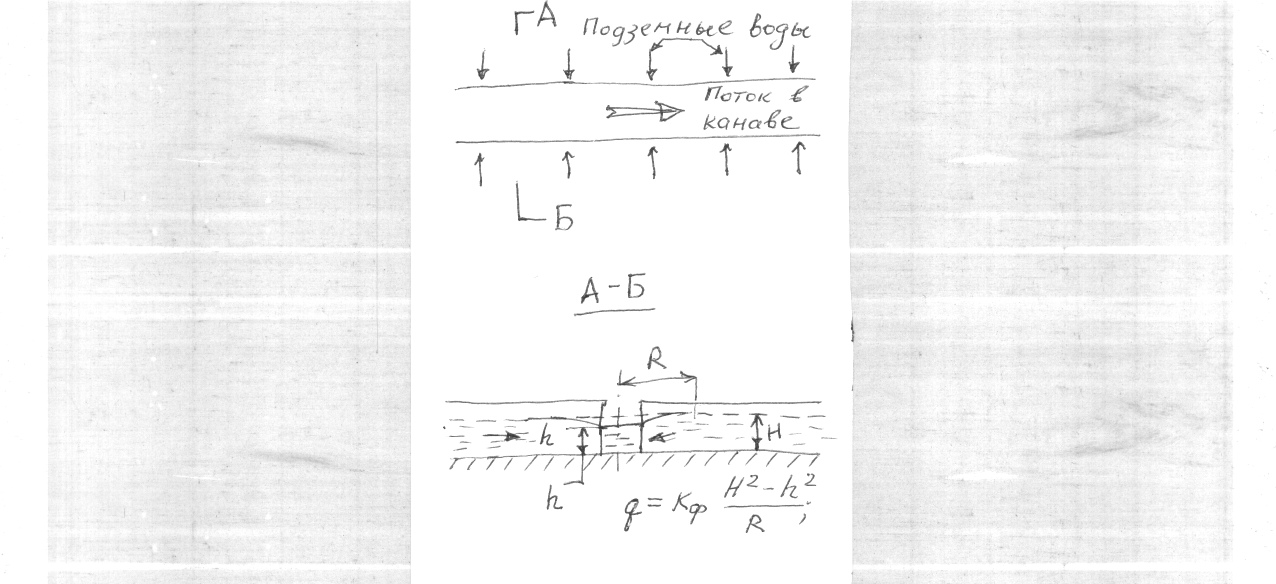 А
Подземные воды
Поток в
канаве
Б
А-Б
R
h
H
h
q = Kф (H² - h²)/R;